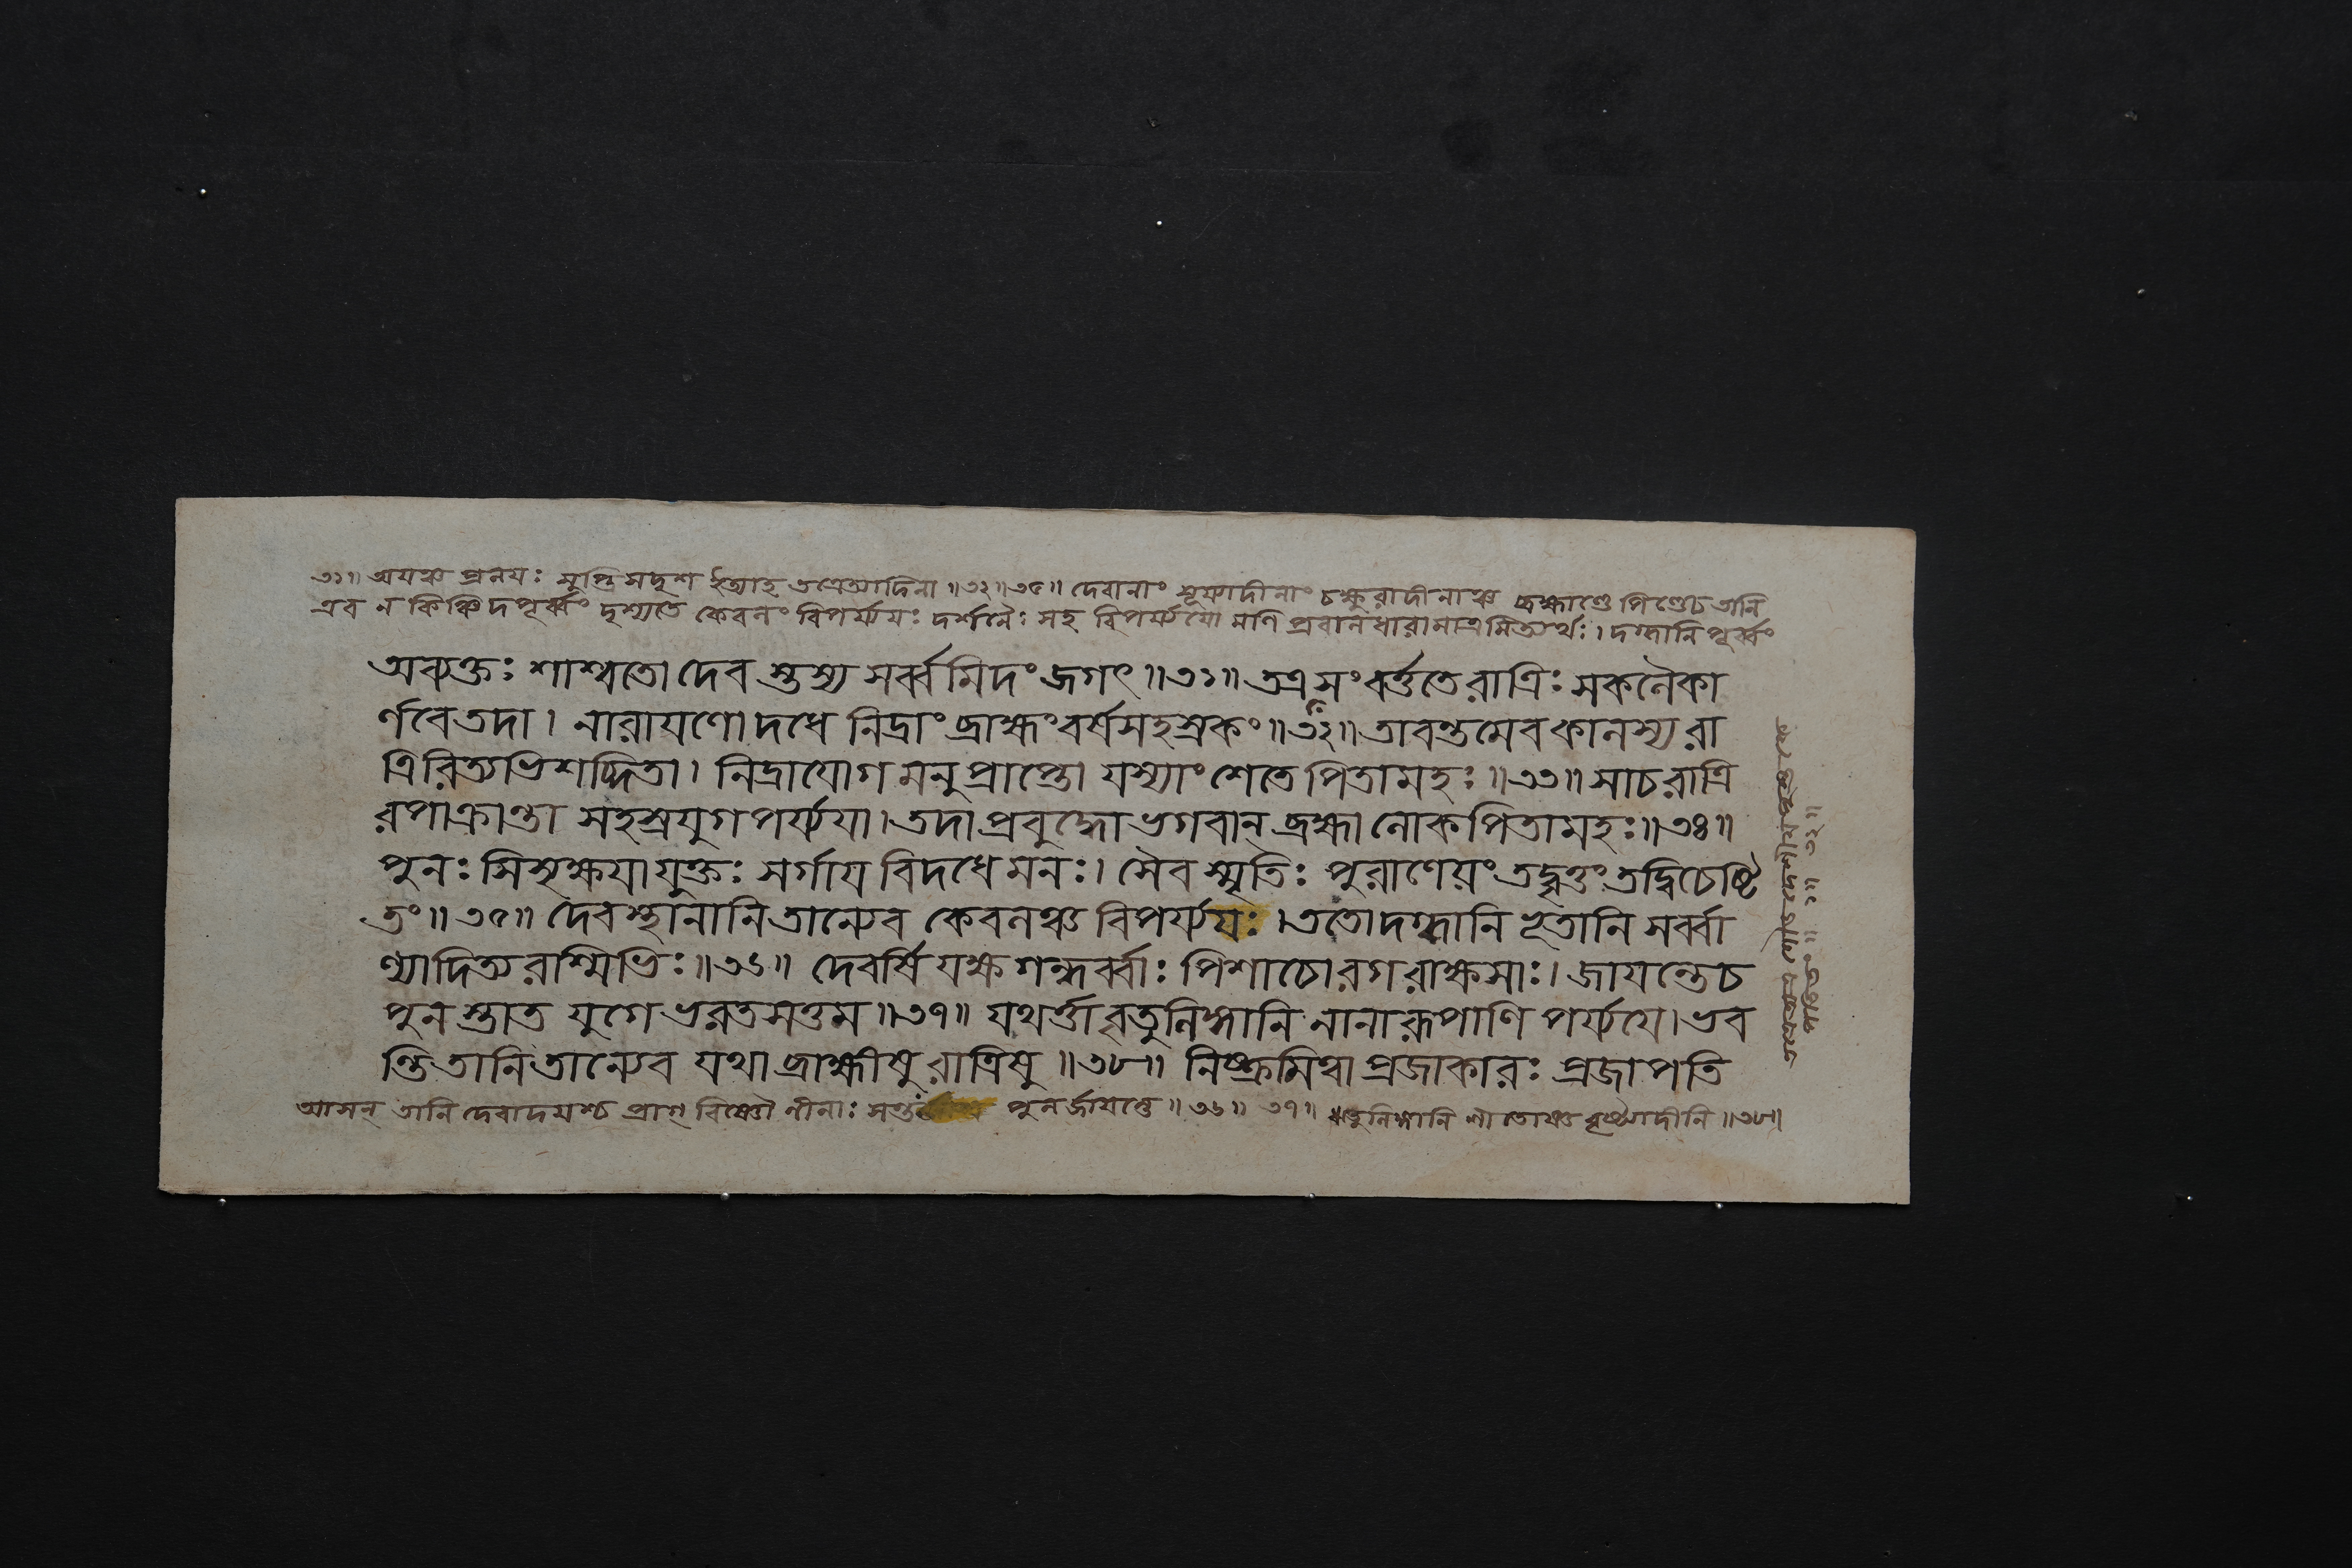 ৩১॥ অযঞ্চ প্রলযঃ সুপ্তিসদৃশ ইত্যাহ তত্রেত্যাদিনা ॥৩২॥৩৫॥ দেবানাং সূর্য্যাদীনাং চক্ষুরাদীনাঞ্চ ব্রহ্মাণ্ডে পিণ্ডেচ তানি
এব ন কিঞ্চিদপূর্ব্বং দৃশ্যতে কেবলং বিপর্য্যযঃ দর্শনৈঃ সহ বিপর্য্যযো মণি প্রবালধারামাত্রমিত্যর্থঃ। দগ্ধানি পূর্ব্বং
অব্যক্তঃ শাশ্বতো দেব স্তস্য সর্ব্বমিদং জগৎ ॥৩১॥ তত্র সংবর্ত্ততে রাত্রিঃ সকলৈকা
র্ণবে তদা। নারাযণো দধে নিদ্রাং ব্রাহ্মং বর্ষসহস্রকং ॥৩২॥ তাবন্তমেব কালস্য রা
ত্রিরিত্যভিশব্দিতা। নিদ্রাযোগ মনুপ্রাপ্তো যস্যাং শেতে পিতামহঃ ॥৩৩॥ সাচ রাত্রি
রপাক্রান্তা সহস্রযুগপর্য্যযা। তদা প্রবুদ্ধো ভগবান্ ব্রহ্মা লোকপিতামহঃ ॥৩৪॥
পুনঃ সিসৃক্ষযা যুক্তঃ সর্গায বিদধে মনঃ। সৈব স্মৃতিঃ পুরাণেযং তদ্বৃত্তং তদ্বিচেষ্টি
তং ॥৩৫॥ দেবস্থানানি তান্যেব কেবলঞ্চ বিপর্য্যযঃ। ততো দগ্ধানি ভূতানি সর্ব্বা
ণ্যাদিত্যরশ্মিভিঃ ॥৩৬॥ দেবর্ষি যক্ষ গন্ধর্ব্বাঃ পিশাচোরগরাক্ষসাঃ। জাযন্তেচ
পুন স্তাত যুগে ভরতসত্তম ॥৩৭॥ যথর্ত্তাবৃতুলিঙ্গানি নানারূপাণি পর্য্যযে। ভব
ন্তি তানি তান্যেব যথা ব্রাহ্মীষু রাত্রিষু ॥৩৮॥ নিষ্ক্রমিত্বা প্রজাকারঃ প্রজাপতি
আসন্ তানি দেবাদযশ্চ প্রাগ্ বিষ্ণৌ লীনাঃ সন্তঃ পুনর্জাযন্তে ॥৩৬॥ ৩৭॥ ঋতুলিঙ্গানি শীতোষ্ণ বৃষ্ট্যাদীনি ॥৩৮॥